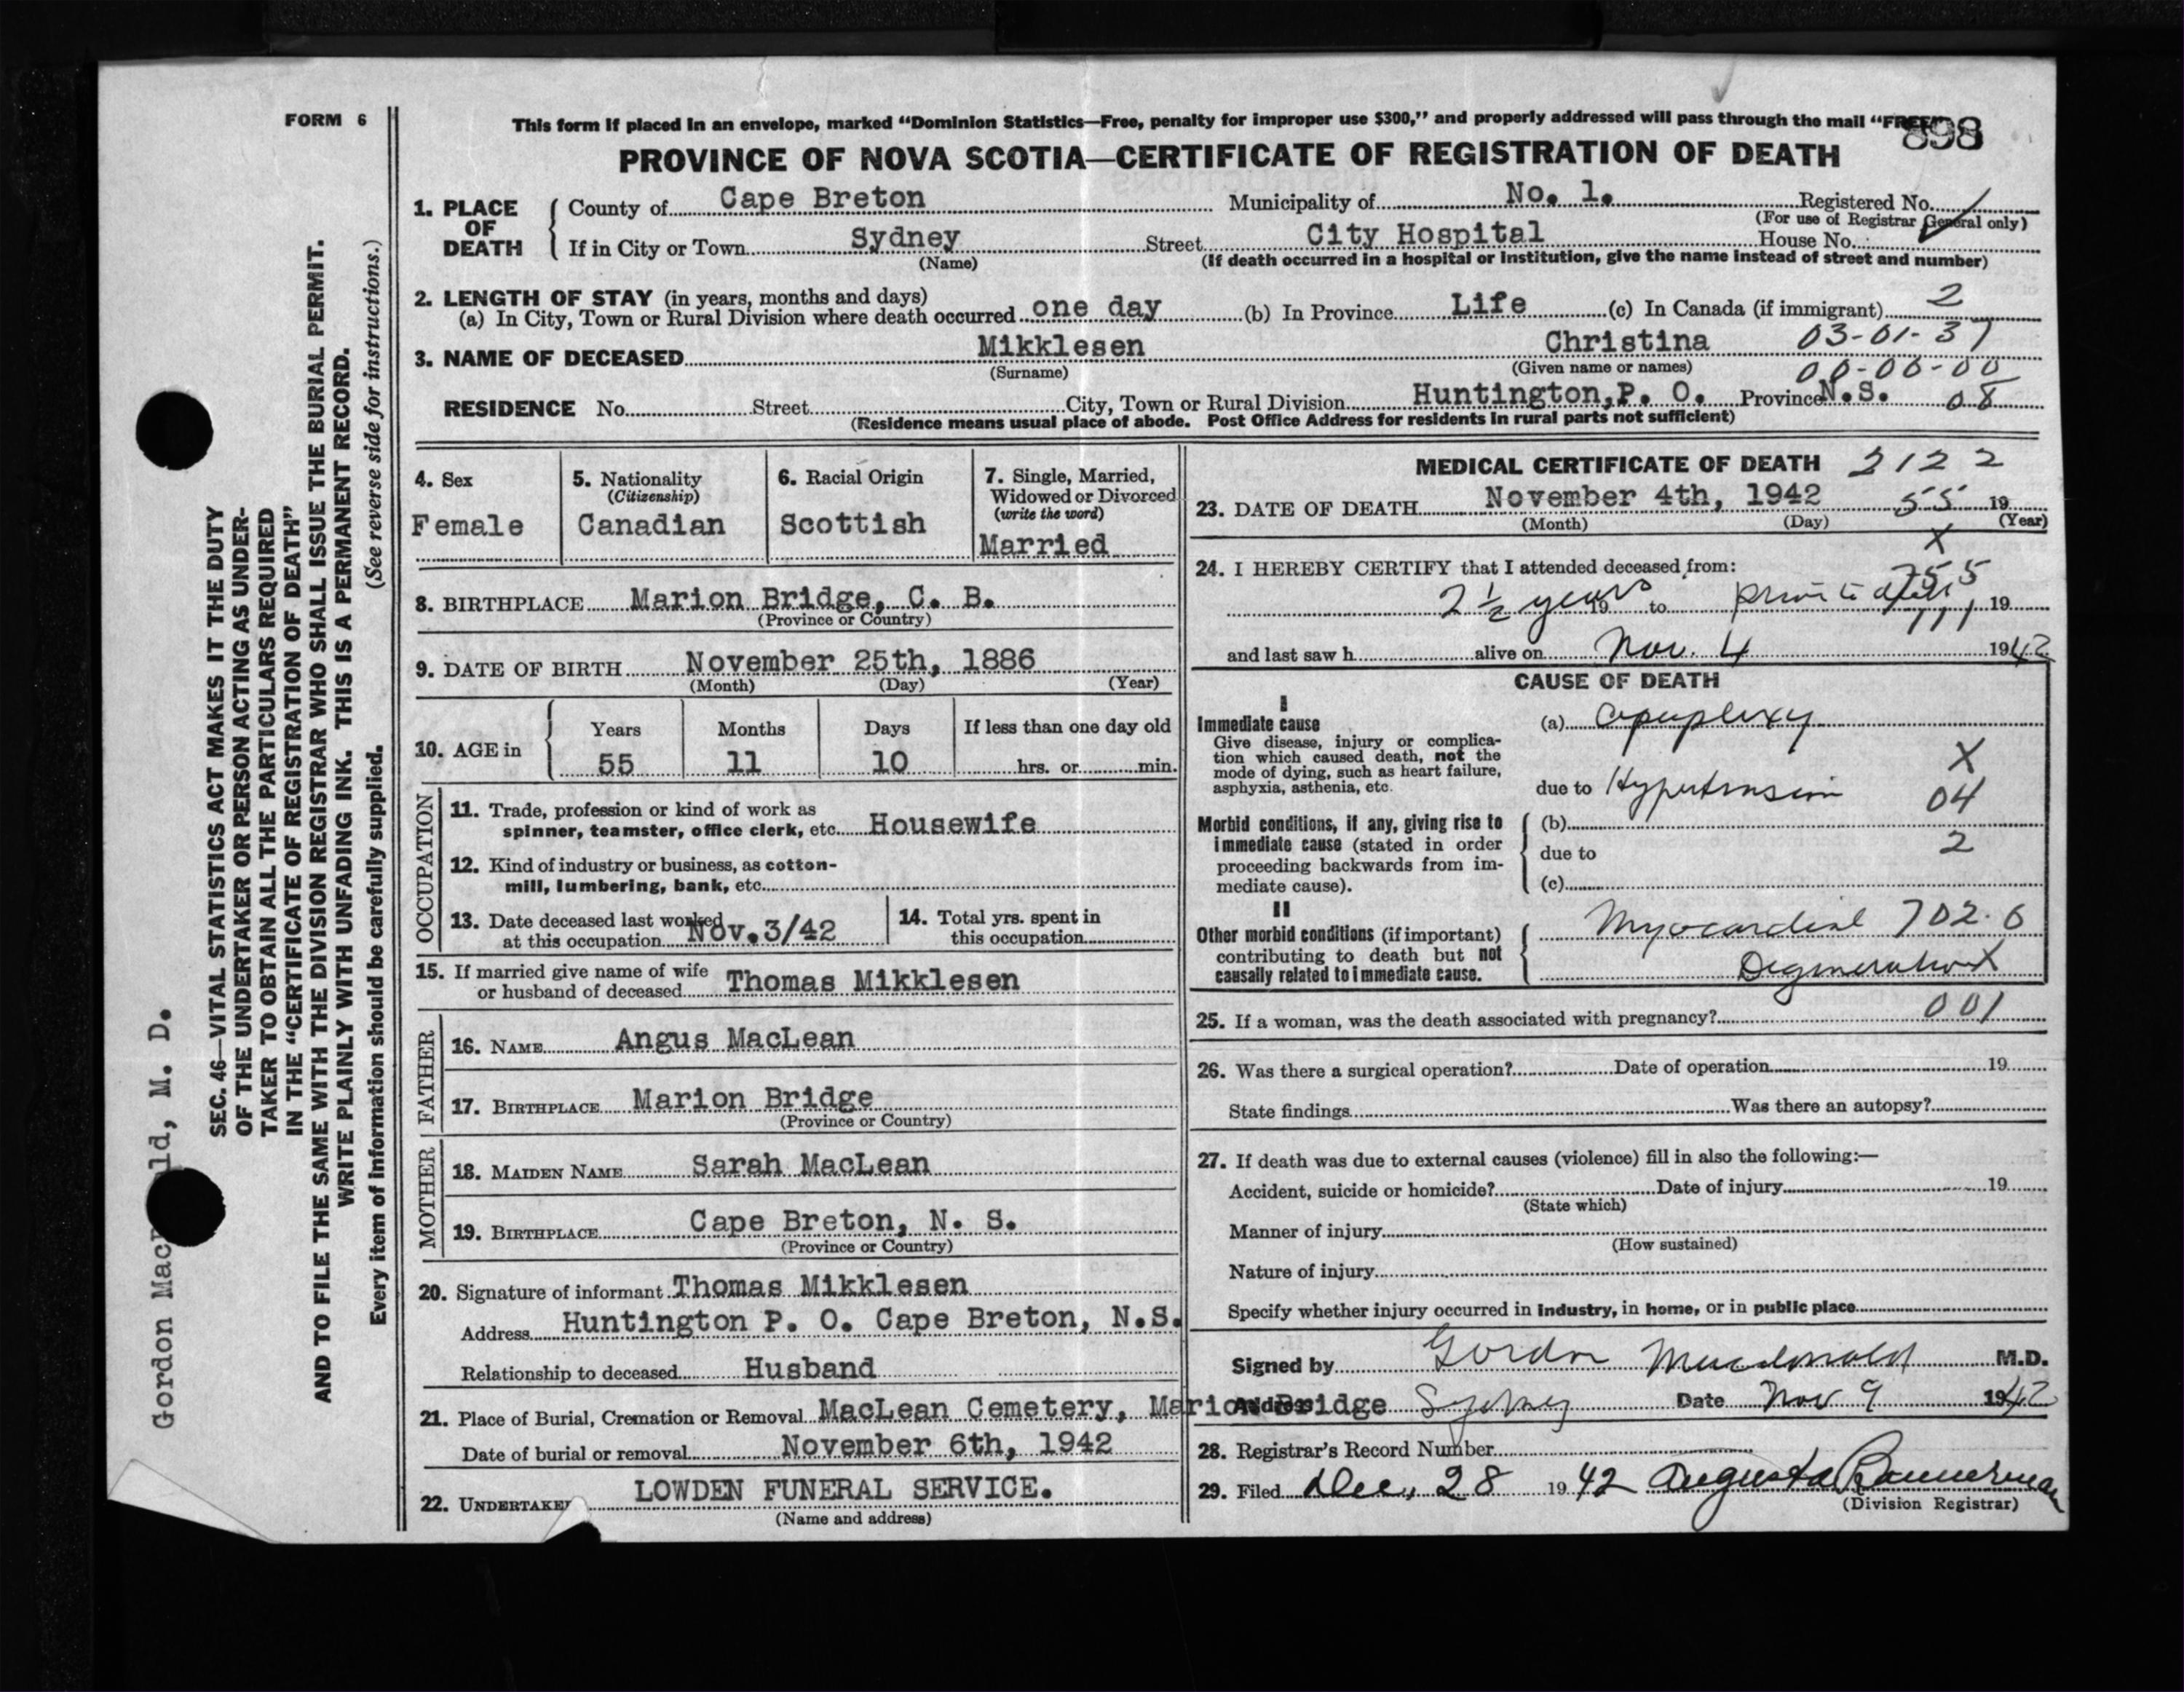 FORM 6
This form if placed in an envelope, marked “Dominion Statistics—Free, penalty for improper use $300,” and properly addressed will pass through the mail “FREE”
898
PROVINCE OF NOVA SCOTIA—CERTIFICATE OF REGISTRATION OF DEATH
1. PLACE OF DEATH
County of Cape Breton Municipality of No. 1. Registered No.
(For use of Registrar General only)
If in City or Town Sydney Street City Hospital House No.
(Name) (If death occurred in a hospital or institution, give the name instead of street and number)
2. LENGTH OF STAY (in years, months and days)
(a) In City, Town or Rural Division where death occurred one day (b) In Province Life (c) In Canada (if immigrant) 2
3. NAME OF DECEASED Mikklesen Christina 03-01-37
(Surname) (Given name or names) 00-00-00
RESIDENCE No. Street City, Town or Rural Division Huntington, P. O. Province N.S. 08
(Residence means usual place of abode. Post Office Address for residents in rural parts not sufficient)
4. Sex
Female
5. Nationality
(Citizenship)
Canadian
6. Racial Origin
Scottish
7. Single, Married,
Widowed or Divorced
(write the word)
Married
8. BIRTHPLACE Marion Bridge, C. B.
(Province or Country)
9. DATE OF BIRTH November 25th, 1886
(Month) (Day) (Year)
10. AGE in
Years Months Days If less than one day old
55 11 10 hrs. or min.
OCCUPATION
11. Trade, profession or kind of work as
spinner, teamster, office clerk, etc. Housewife
12. Kind of industry or business, as cotton-
mill, lumbering, bank, etc.
13. Date deceased last worked
at this occupation Nov. 3/42
14. Total yrs. spent in
this occupation
15. If married give name of wife
or husband of deceased Thomas Mikklesen
FATHER
16. NAME Angus MacLean
17. BIRTHPLACE Marion Bridge
(Province or Country)
MOTHER
18. MAIDEN NAME Sarah MacLean
19. BIRTHPLACE Cape Breton, N. S.
(Province or Country)
20. Signature of informant Thomas Mikklesen
Address Huntington P. O. Cape Breton, N.S.
Relationship to deceased Husband
21. Place of Burial, Cremation or Removal MacLean Cemetery, Marion Bridge
Date of burial or removal November 6th, 1942
22. UNDERTAKER LOWDEN FUNERAL SERVICE.
(Name and address)
MEDICAL CERTIFICATE OF DEATH 2122
23. DATE OF DEATH November 4th, 1942 55 19
(Month) (Day) (Year)
X
24. I HEREBY CERTIFY that I attended deceased from:
2 ½ years 19 to prior to 19
and last saw h alive on Nov. 4 1942
CAUSE OF DEATH
I
Immediate cause (a) Apoplexy
Give disease, injury or complica-
tion which caused death, not the
mode of dying, such as heart failure,
asphyxia, asthenia, etc.
X
due to Hypertension 04
Morbid conditions, if any, giving rise to
immediate cause (stated in order
proceeding backwards from im-
mediate cause).
(b)
due to 2
(c)
II
Other morbid conditions (if important)
contributing to death but not
causally related to immediate cause.
Myocardial 702.6
Degeneration X
25. If a woman, was the death associated with pregnancy? 001
26. Was there a surgical operation? Date of operation 19
State findings Was there an autopsy?
27. If death was due to external causes (violence) fill in also the following:—
Accident, suicide or homicide? Date of injury 19
(State which)
Manner of injury
(How sustained)
Nature of injury
Specify whether injury occurred in industry, in home, or in public place
Signed by Gordon Macdonald M.D.
Address Sydney Date Nov 9 1942
28. Registrar's Record Number
29. Filed Dec. 28 1942 Augusta Bannerman
(Division Registrar)
SEC. 46—VITAL STATISTICS ACT MAKES IT THE DUTY
OF THE UNDERTAKER OR PERSON ACTING AS UNDER-
TAKER TO OBTAIN ALL THE PARTICULARS REQUIRED
IN THE “CERTIFICATE OF REGISTRATION OF DEATH”
AND TO FILE THE SAME WITH THE DIVISION REGISTRAR WHO SHALL ISSUE THE BURIAL PERMIT.
WRITE PLAINLY WITH UNFADING INK. THIS IS A PERMANENT RECORD.
Every item of information should be carefully supplied. (See reverse side for instructions.)
Gordon Mac ld, M. D.